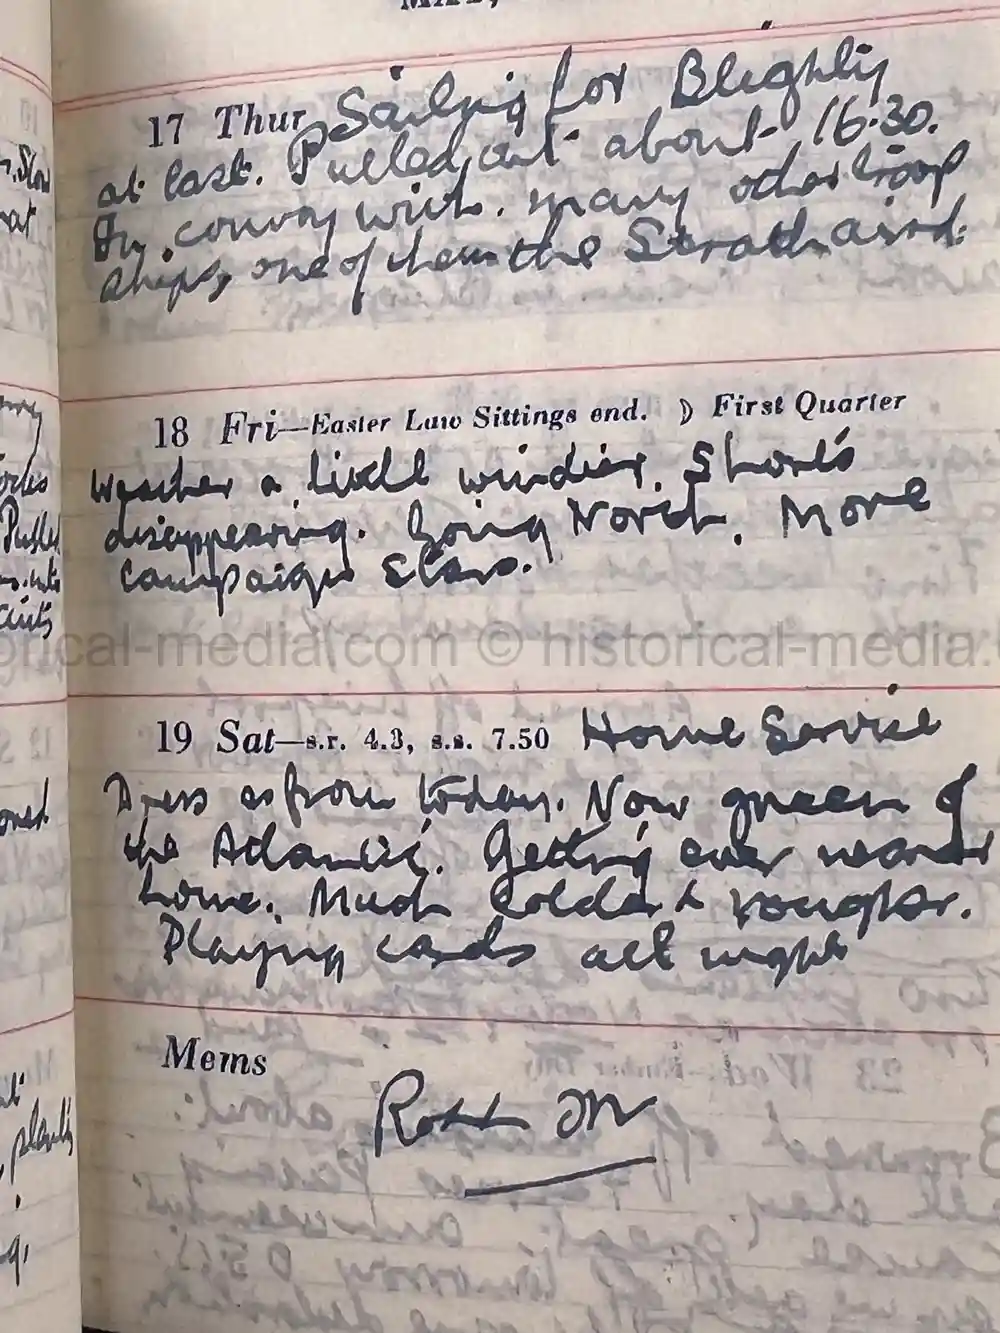 MAY,
17 Thur Sailing for Blighty
at last. Pulled out about 16.30.
In convoy with many other troop
ships, one of them the Strathnaird.
18 Fri—Easter Law Sittings end. ☽ First Quarter
Weather a littl windier. Shores
disappearing. Going North. More
campaign stars.
19 Sat—s.r. 4.3, s.s. 7.50 Home Service
Dress as from today. Now green of
the Atlantic. Getting ever nearer
home. Much colder & rougher.
Playing cards all night
Mems
historical-media.com © historical-media.